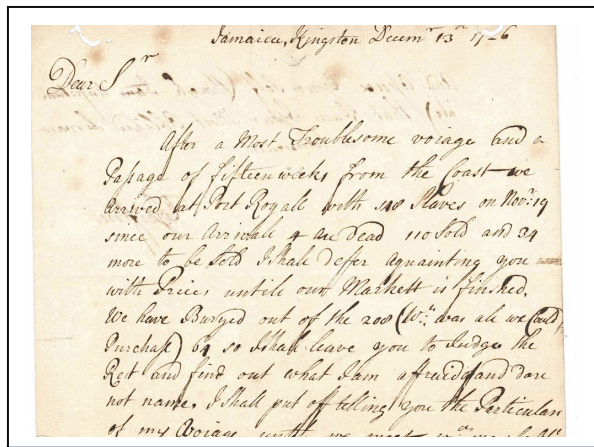 Jamaica, Kingston Decemr 13th 1726
Dear Sr
After a Most Troublesome voiage and a
Passage of fifteen weeks from the Coast we
arived at Port Royall with 148 Slaves on Novr: 19
since our arrivall 4 are Dead 110 Sold and 34
more to be Sold I Shall defer aquainting you
with Prices untill our Markett is finshed.
We have Buryed out of the 208 (Wch: was all we Could
Purchase) 64 so I shall leave you to Judge the
Rest and find out what I am affraid and dare
not name. I Shall put off telling you the Particulars
of my Voiage untill we meet